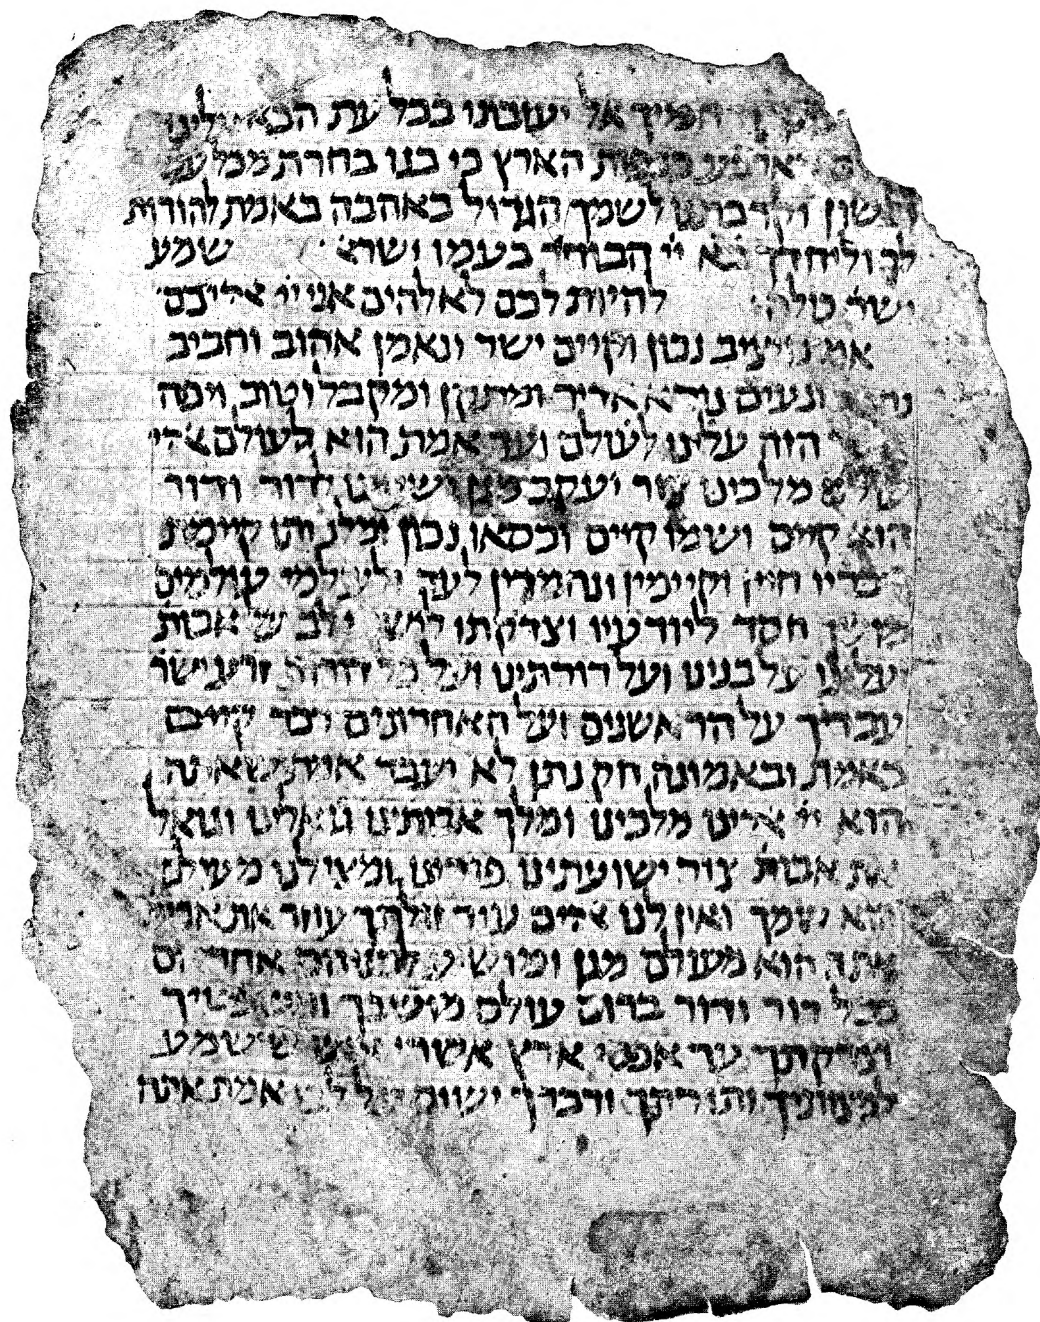 אל יעזבנו בכל עת הבא עלינו
הארץ כי בנו בחרת מכל עם
ולשון וקרבתנו לשמך הגדול באהבה באמת להודות
לך וליחדך בא יי הבוחר בעמו ישר שמע
ישר כולה להיות לכם לאלהים אני יי אליכם
אמת ויציב נכון וקיים ישר ונאמן אהוב וחביב
ונעים נורא אדיר ומתוקן ומקובל וטוב ויפה
הזה עלינו לעולם ועד אמת הוא לעולם
מלכינו צור יעקב מגן ישעינו לדור ודור
הוא קיים ושמו קיים וכסאו נכון ומלכותו קיימת
דבריו חיין וקיימין ונחמדין לעד ולעולמי עולמים
חסד ליודעיו וצדקתו אבות
עלינו על בנינו ועל דורתינו ועל כל זרע ישר
עבדיך על הראשנים ועל האחרונים דבר קיים
באמת ובאמונה חק נתן לא יעבר אמת שאתה
הוא יי מלכינו ומלך אבותינו גואלינו וגואל
את אבות צור ישועתינו פודינו ומצילנו מעולם
הוא שמך ואין לנו עוד זולתך עוזר
אתה הוא מעולם מגן ומושיע
בכל דור ודור ברום עולם מושבך
וצדקתך עד אפסי ארץ אשרי איש שישמע
למצותיך ותורתך ודברך ישים על לבו אמת אתה